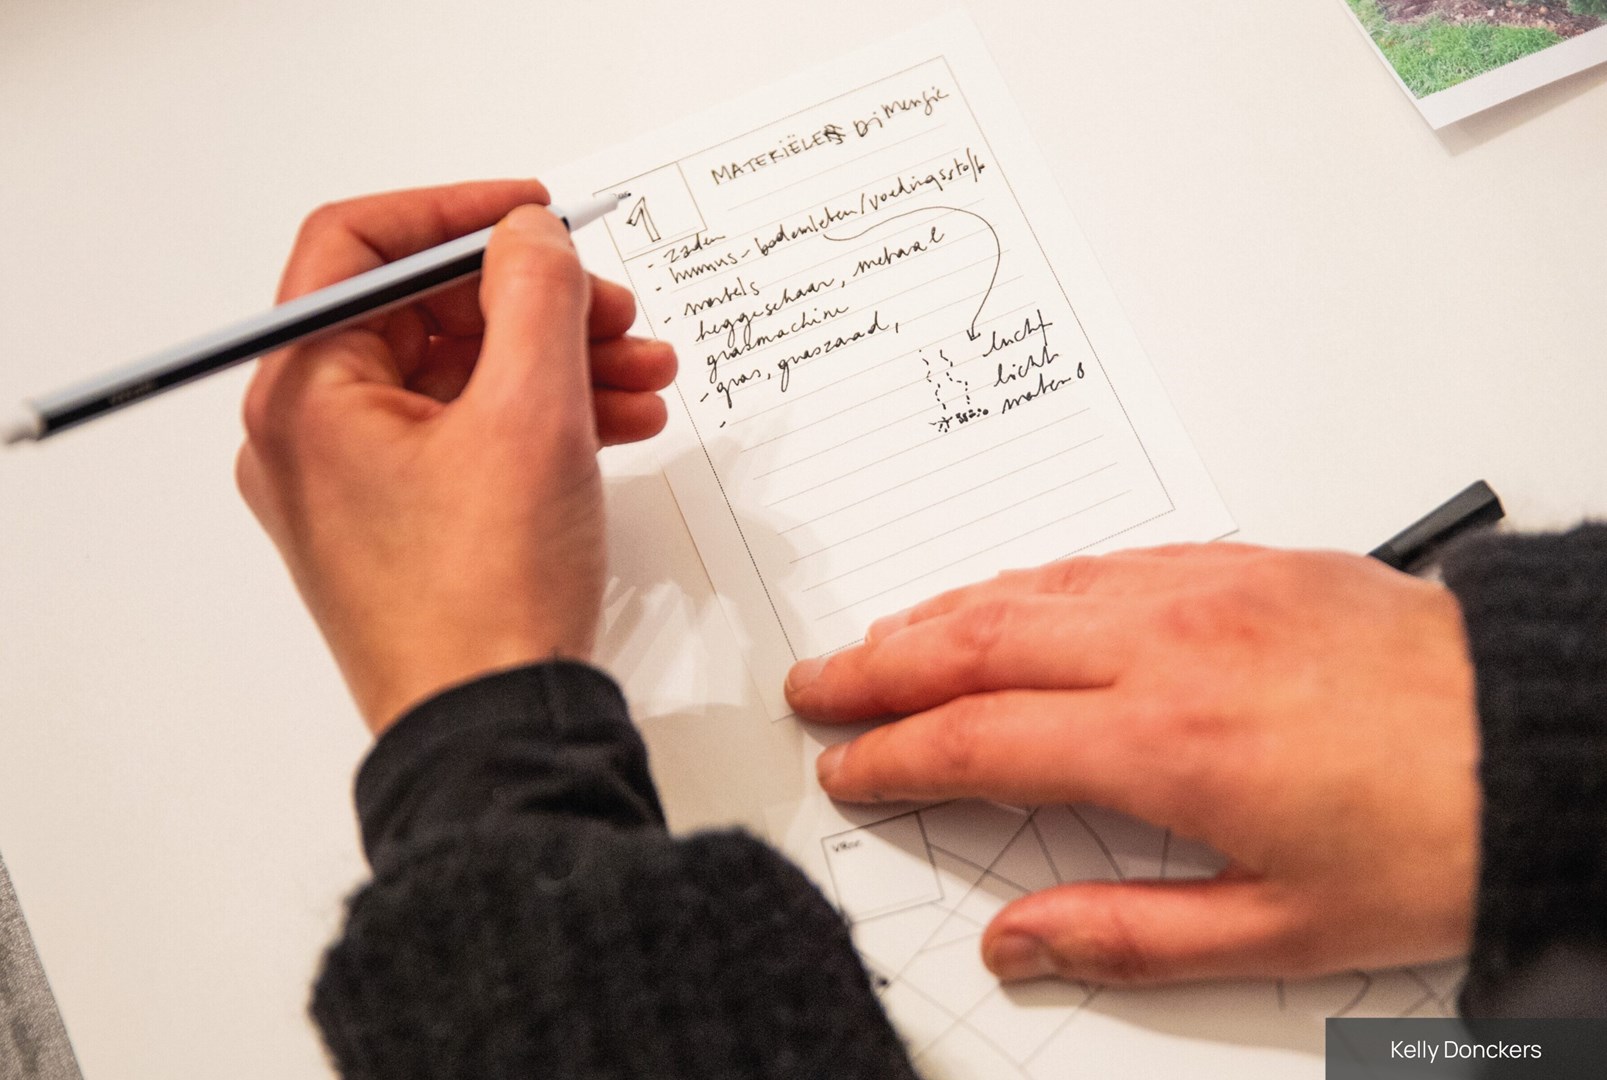 MATERIËLE Dimensie
1
- zaden
- humus - bodemleven/voedingsstof
- wortels
heggeschaar, metaal
grasmachine
- gras, graszaad,
-
lucht
licht
water
Kelly Donckers